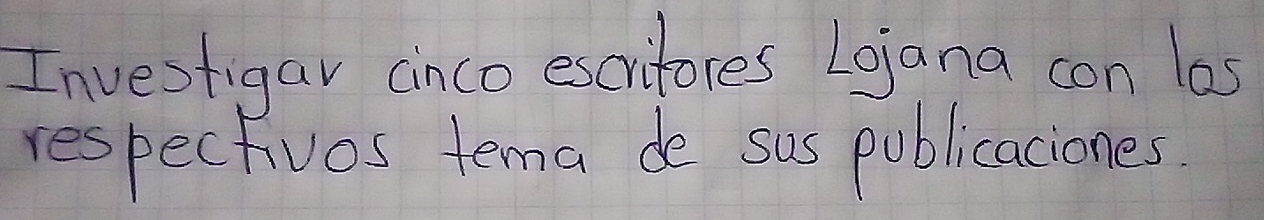 Investigar cinco escritores Lojana con los
respectivos tema de sus publicaciones.